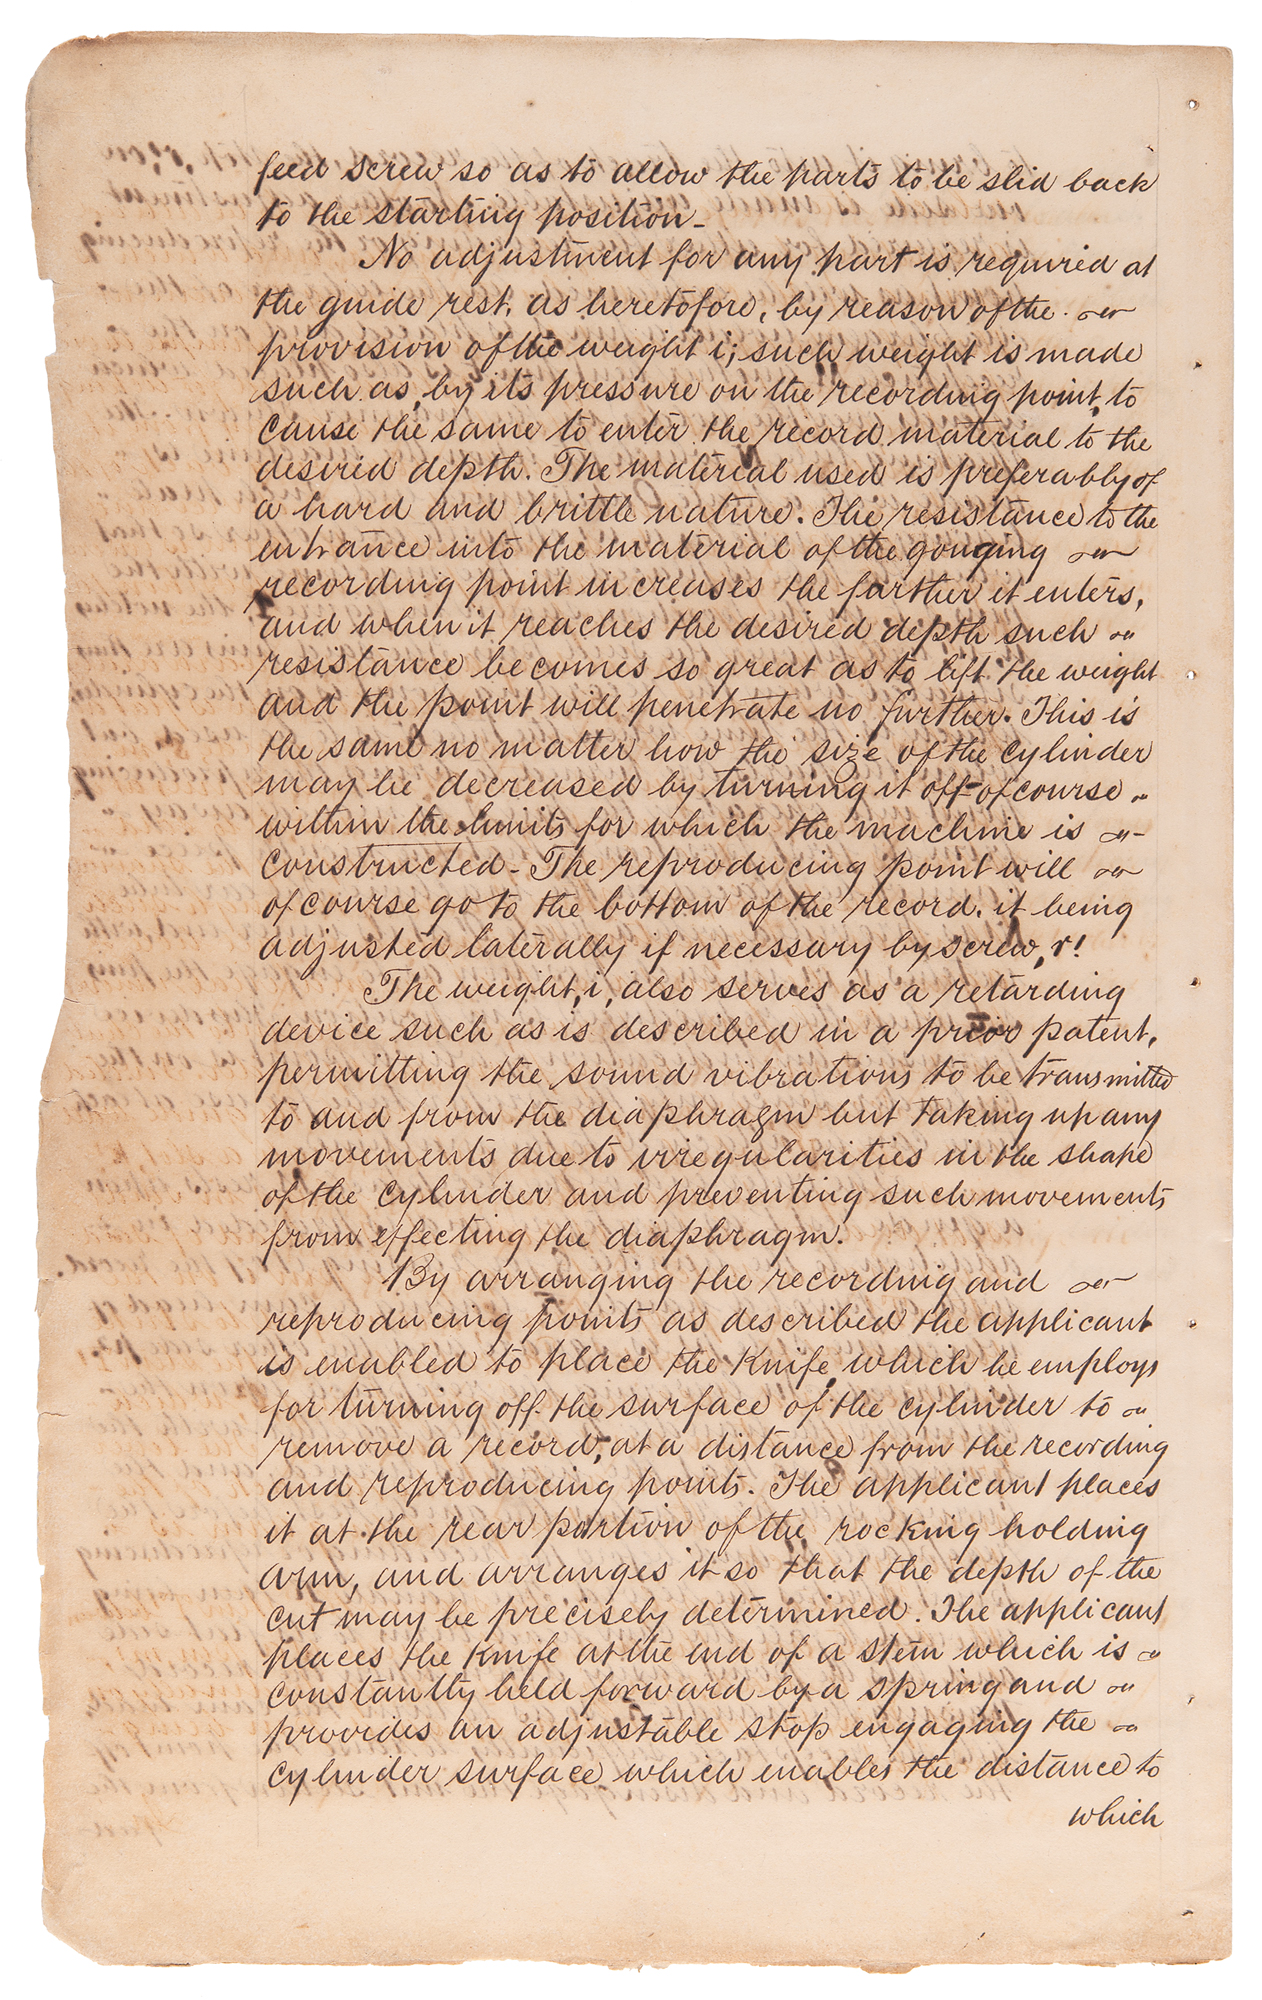 feed screw so as to allow the parts to be slid back
to the starting position -
No adjustment for any part is required at
the guide rest, as heretofore, by reason of the
provision of the weight i; such weight is made
such as, by its pressure on the recording point, to
cause the same to enter the record material to the
desired depth. The material used is preferably of
a hard and brittle nature. The resistance to the
entrance into the material of the gouging
recording point increases the farther it enters,
and when it reaches the desired depth such
resistance becomes so great as to lift the weight
and the point will penetrate no further. This is
the same no matter how the size of the cylinder
may be decreased by turning it off - of course
within the limits for which the machine is
constructed - The reproducing point will
of course go to the bottom of the record, it being
adjusted laterally if necessary by screw, r!
The weight, i, also serves as a retarding
device such as is described in a prior patent,
permitting the sound vibrations to be transmitted
to and from the diaphragm but taking up any
movements due to irregularities in the shape
of the cylinder and preventing such movements
from effecting the diaphragm.
By arranging the recording and
reproducing points as described the applicant
is enabled to place the knife, which he employs
for turning off the surface of the cylinder to
remove a record, at a distance from the recording
and reproducing points. The applicant places
it at the rear portion of the rocking holding
arm, and arranges it so that the depth of the
cut may be precisely determined. The applicant
places the knife at the end of a stem which is
constantly held forward by a spring and
provides an adjustable stop engaging the
cylinder surface which enables the distance to
which